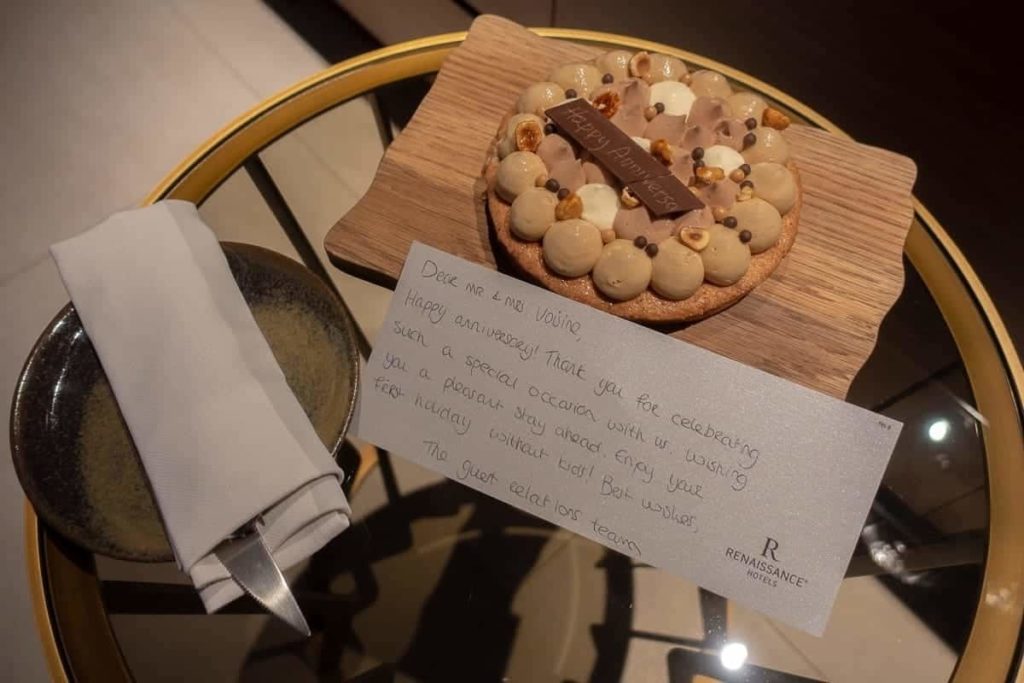 Happy Anniversa
Dear MR & MRS Voisine,
Happy anniversary! Thank you for celebrating
such a special occasion with us. Wishing
you a pleasant stay ahead. Enjoy your
first holiday without kids! Best wishes,
The guest relations team
R
RENAISSANCE®
HOTELS